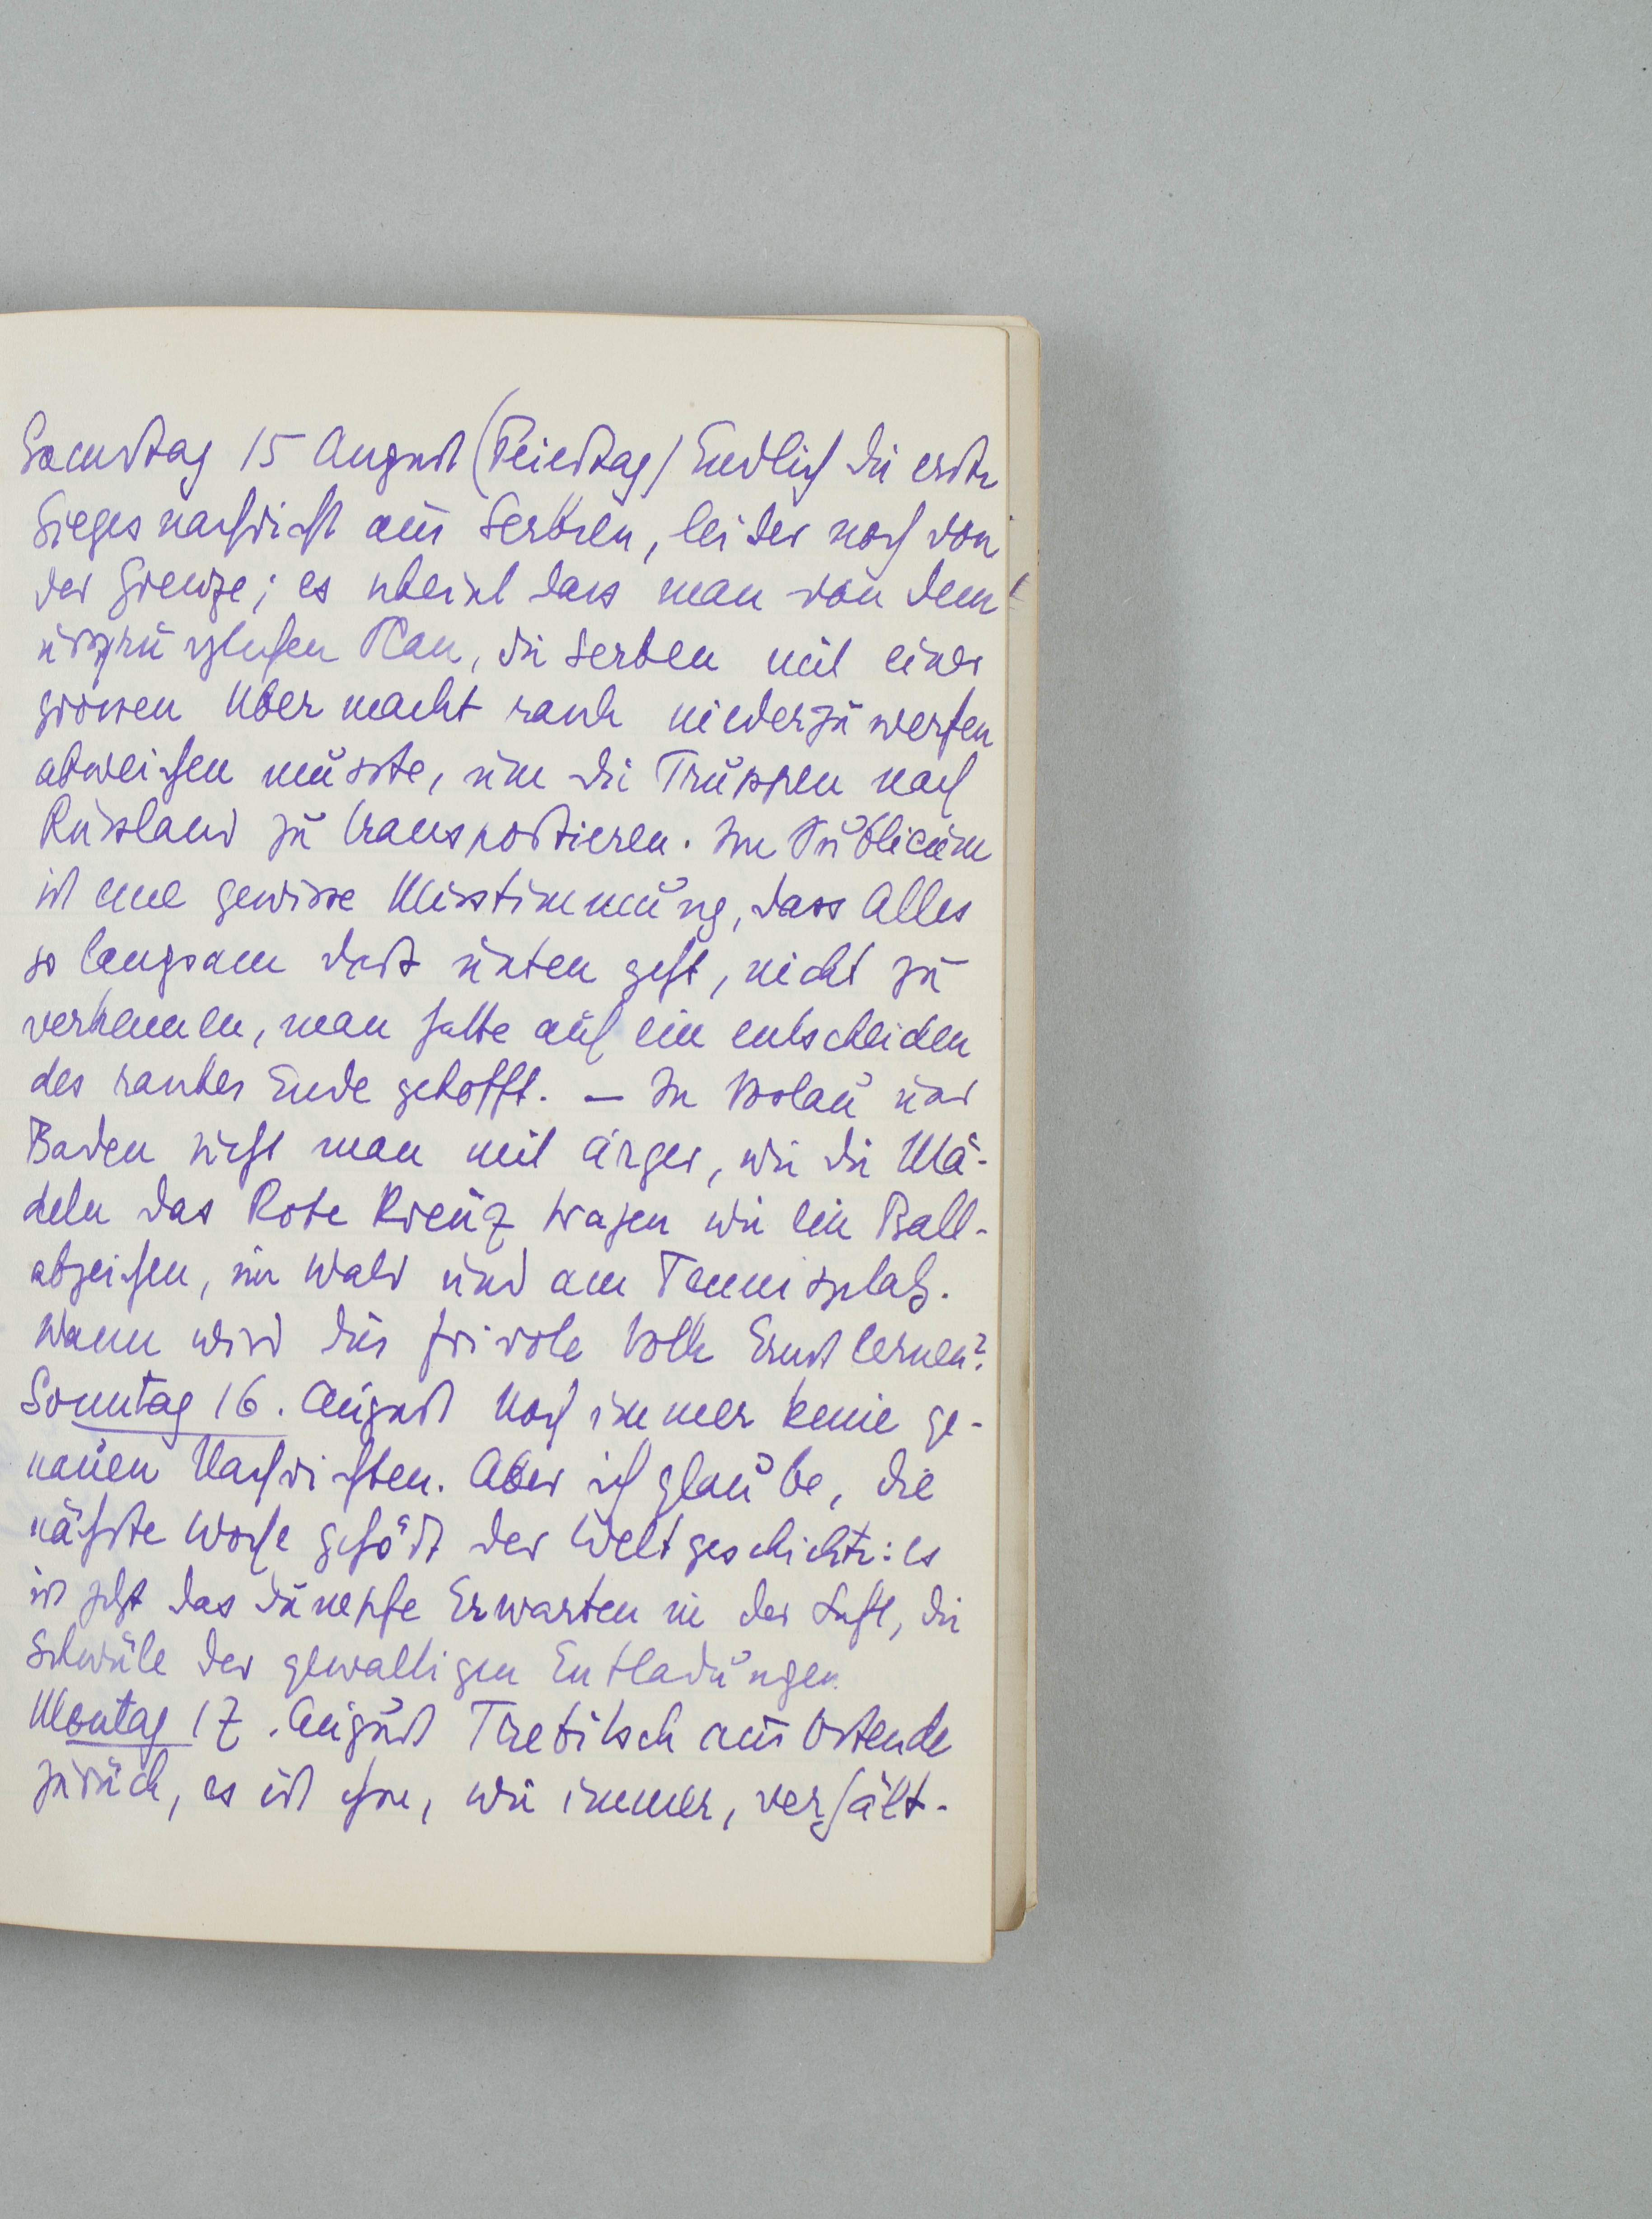 Samstag 15 August (Feiertag) Endlich die erste
Siegesnachricht aus Serbien, leider noch von
der Grenze; es scheint dass man von dem
ursprünglichen Plan, die Serben mit einer
grossen Übermacht rasch niederzuwerfen
abweichen musste, um die Truppen nach
Russland zu transportieren. Im Publicum
ist eine gewisse Missstimmung, dass Alles
so langsam dort unten geht, nicht zu
verkennen, man hatte auf ein entscheiden
des rasches Ende gehofft. – In Vöslau und
Baden sieht man mit Ärger, wie die Mä-
deln das Rote Kreuz tragen wie ein Ball-
abzeichen, im Wald und am Tennisplatz.
Wann wird dies frivole Volk Ernst lernen?
Sonntag 16. August Noch immer keine ge-
nauen Nachrichten. Aber ich glaube, die
nächste Woche gehört der Weltgeschichte: es
ist jetzt das dumpfe Erwarten in der Luft, die
Schwüle der gewaltigen Entladungen.
Montag 17. August Trebitsch aus Ostende
zurück, es ist schön, wie immer, verhält-